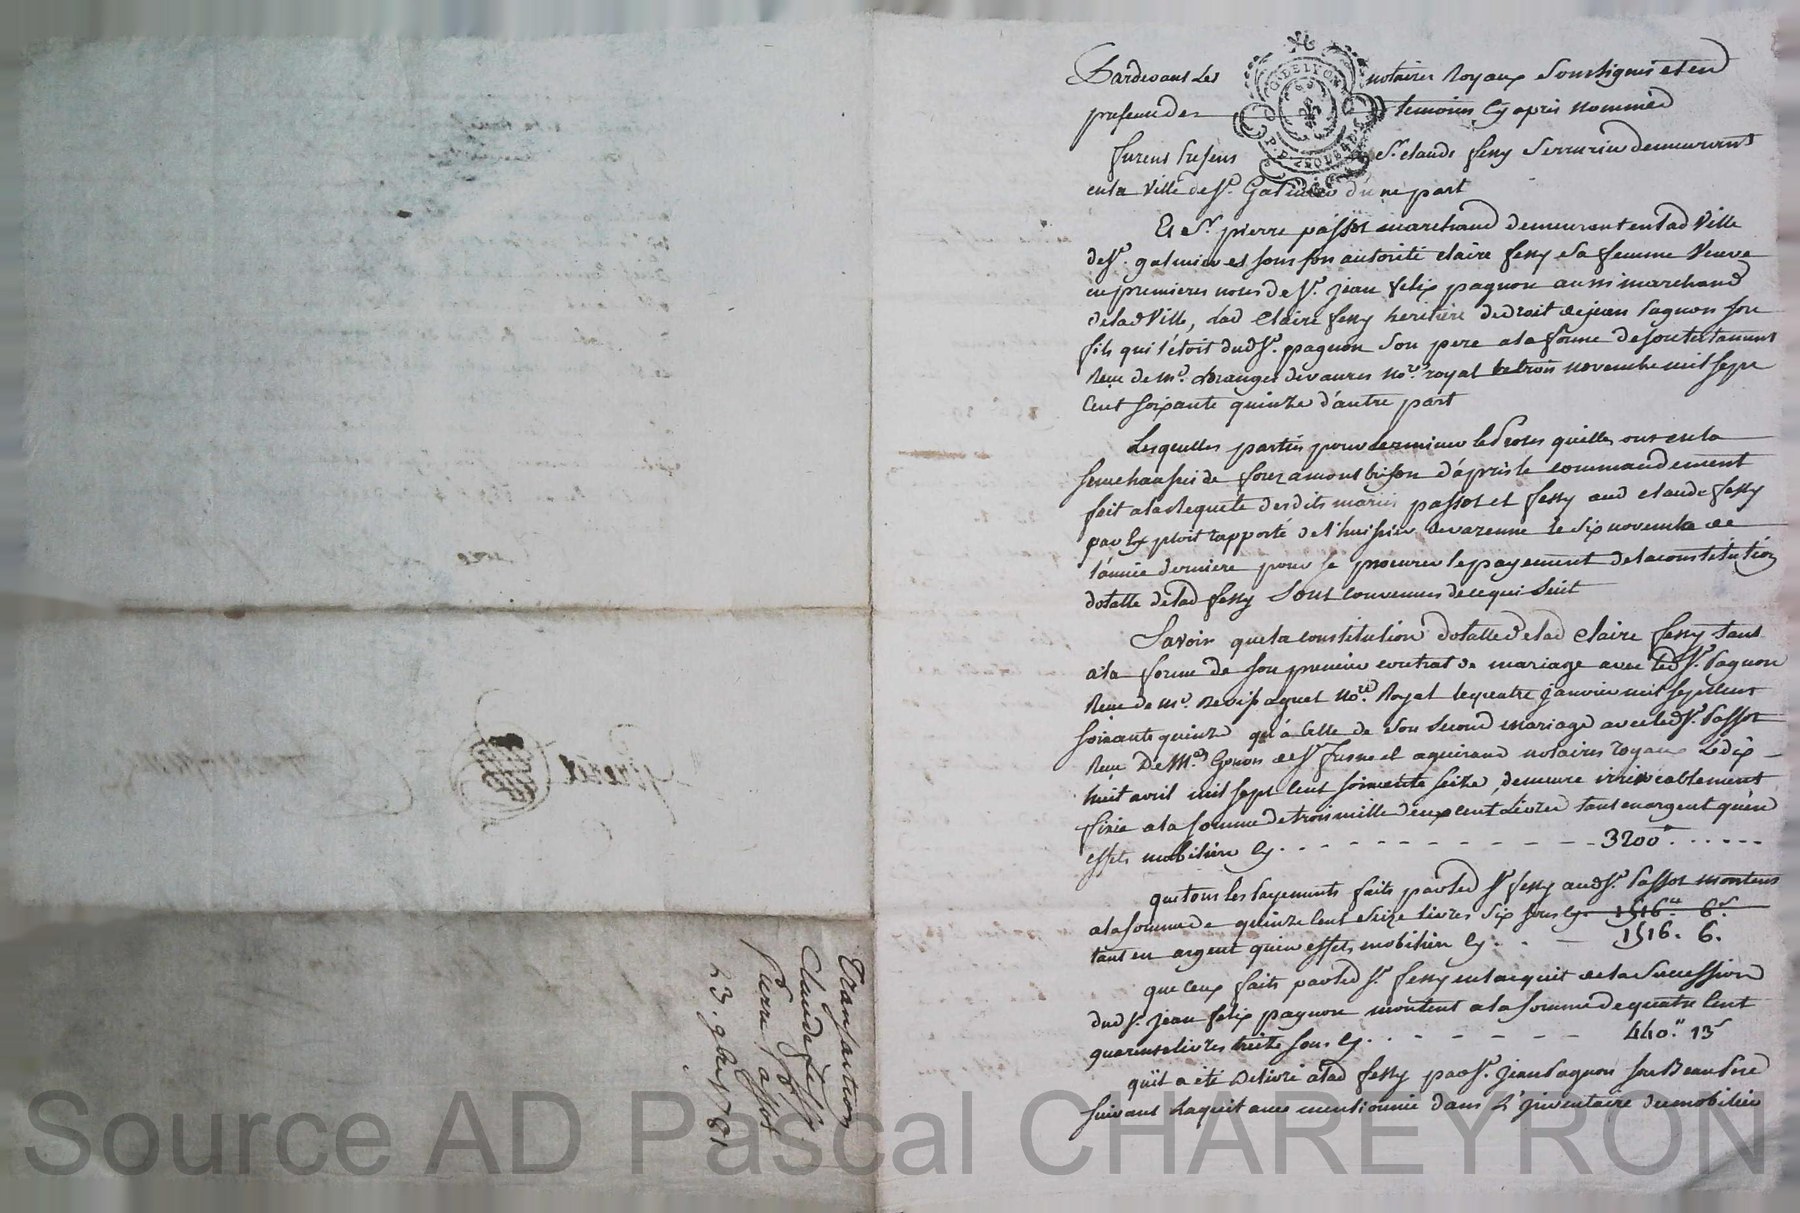 Pardevant Les notaires Royaux soussignés et en
presence des temoins cy apres nommés
furent presens Sr. claude fessy serrurier demeurant
en la ville de St. Galmier d'une part
Et Sr. pierre passot marchand demeurant en lad ville
de St. galmier et sous son autorité claire fessy sa femme veuve
en premieres noces de Sr. jean felix pagnon aussi marchand
de lad ville, lad claire fessy heritiere de droit de jean pagnon son
fils qui l'étoit dud Sr. pagnon son pere a la forme de son testament
Recu de Me. devaures Nore. royal le trois novembre mil sept
cent soixante quinze d'autre part
Lesquelles parties pour terminer le Proces quelles ont en la
senechaussée de forez a montbrison d'après le commandement
fait a la Requete desdits mariés passot et fessy aud claude fessy
par Exploit rapporté de l'huissier devarenne le six novembre de
l'année derniere pour se procurer le payement de la constitution
dotalle de lad fessy sont convenues de ce qui suit
Savoir que la constitution dotalle de lad claire fessy tant
a la forme de son premier contrat de mariage avec led Sr. Pagnon
Recu de Me. Nore. Royal le quatre janvier mil sept cent
soixante quinze qu'à celle de son second mariage avec led Sr. Passot
Recu De Mes. Gonon de St fresne et aguirand notaires royaux le dix
huit avril mil sept cent soixante seize, demeure irrévocablement
fixée a la somme de trois mille deux cent Livres tant en argent qu'en
effets mobiliers cy 3200"
que tous les payements faits par led Sr fessy aud Sr. Passot montent
a la somme de quinze cent seize livres six sous cy 1516" 6s
tant en argent qu'en effets mobiliers cy 1516. 6.
que ceux faits par led Sr. fessy en l'acquit de la succession
dud Sr. jean felix pagnon montent a la somme de quatre cent
quarente livres treize sous cy 440" 13s
quil a été delivré a lad fessy par Sr. jean Pagnon son Beau Pere
suivant la quittance mentionnée dans L'inventaire du mobilier
Transaction
Claude fessy
Pierre Passot
23. 9bre 1781
Source AD Pascal CHAREYRON